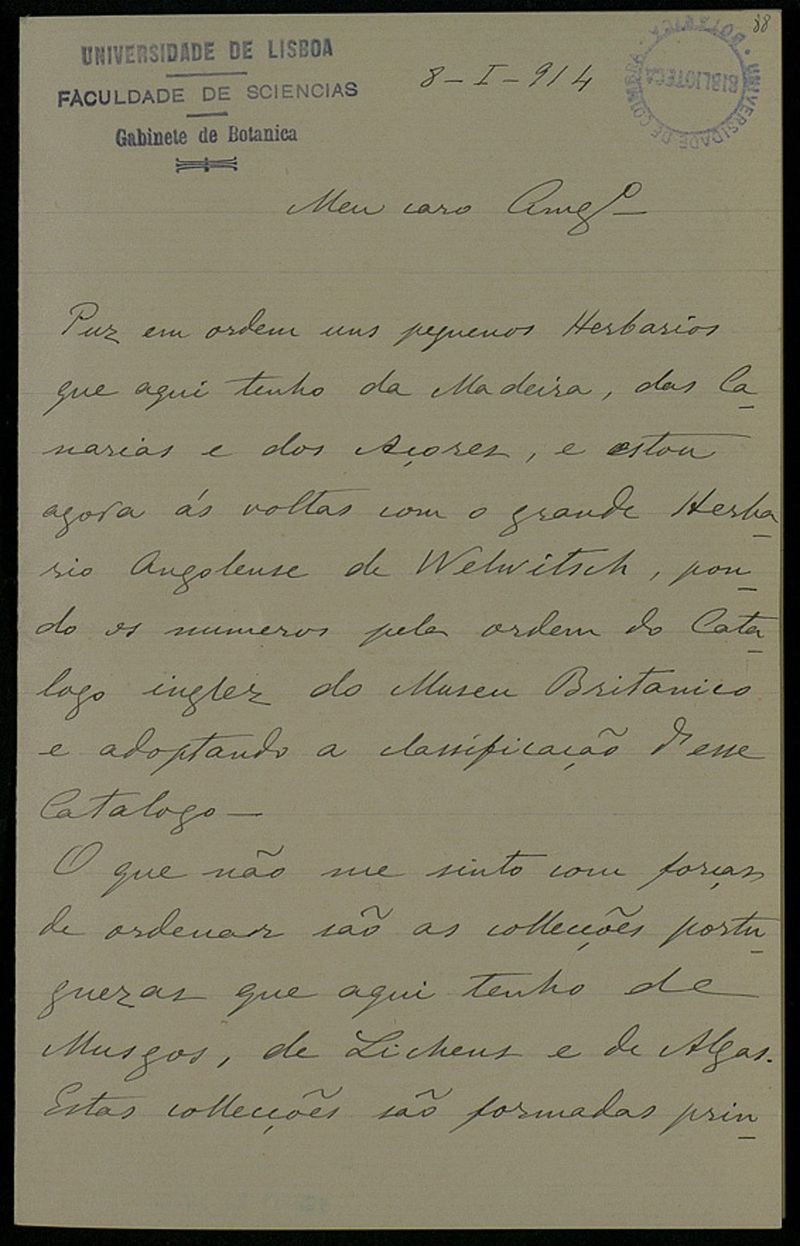 88
UNIVERSIDADE DE LISBOA
FACULDADE DE SCIENCIAS
Gabinete de Botanica
8-I-914
UNIVERSIDADE DE COIMBRA · BOTANICA ·
BIBLIOTECA
Meu caro Amgº
Puz em ordem uns pequenos Herbarios
que aqui tenho da Madeira, das Ca
narias e dos Açores, e estou
agora ás voltas com o grande Herba
rio Angolense de Welwitsch, pon
do os numeros pela ordem do Cata
logo inglez do Museu Britanico
e adoptando a classificação d'esse
Catalogo —
O que não me sinto com forças
de ordenar são as collecções portu
guezas que aqui tenho de
Musgos, de Lichens e de Algas.
Estas collecções são formadas prin